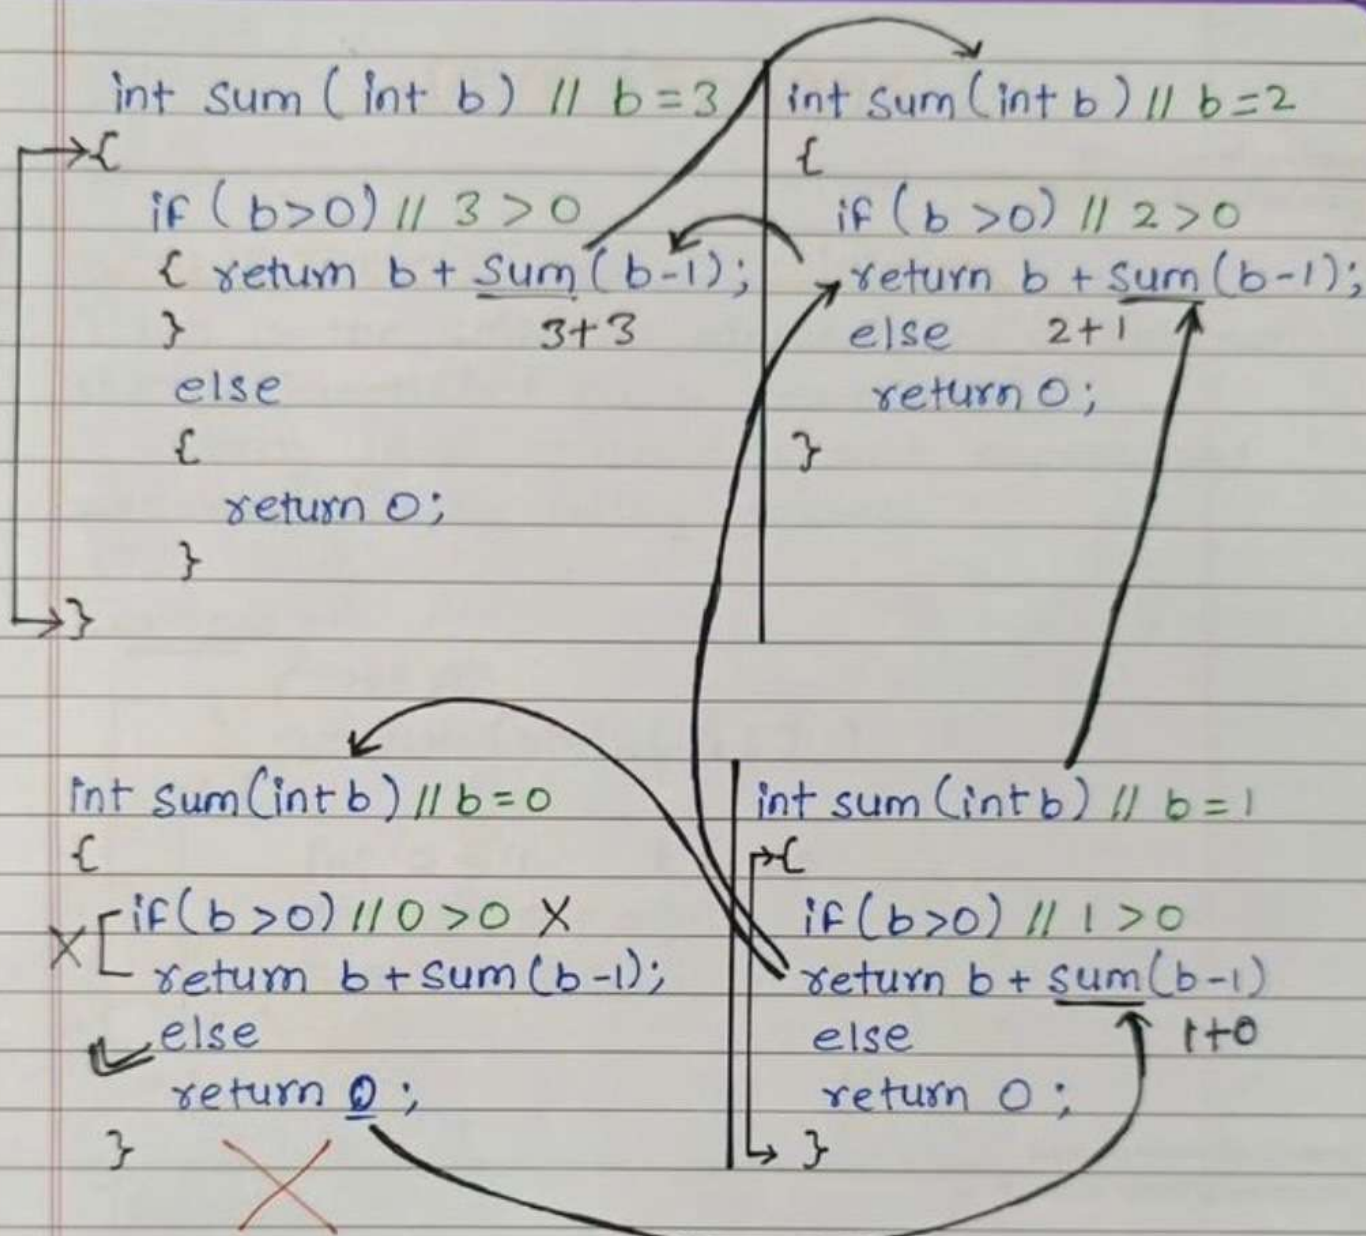 int sum (int b) // b=3
{
if (b>0) // 3 > 0
{ return b + sum (b-1);
} 3+3
else
{
return 0;
}
}
int sum (int b) // b=2
{
if (b >0) // 2 > 0
return b + sum (b-1);
else 2+1
return 0;
}
int sum (int b) // b = 0
{
X if (b >0) // 0 > 0 X
return b + sum (b-1);
else
return 0 ;
}
int sum (int b) // b = 1
{
if (b>0) // 1 > 0
return b + sum (b-1)
else 1+0
return 0 ;
}